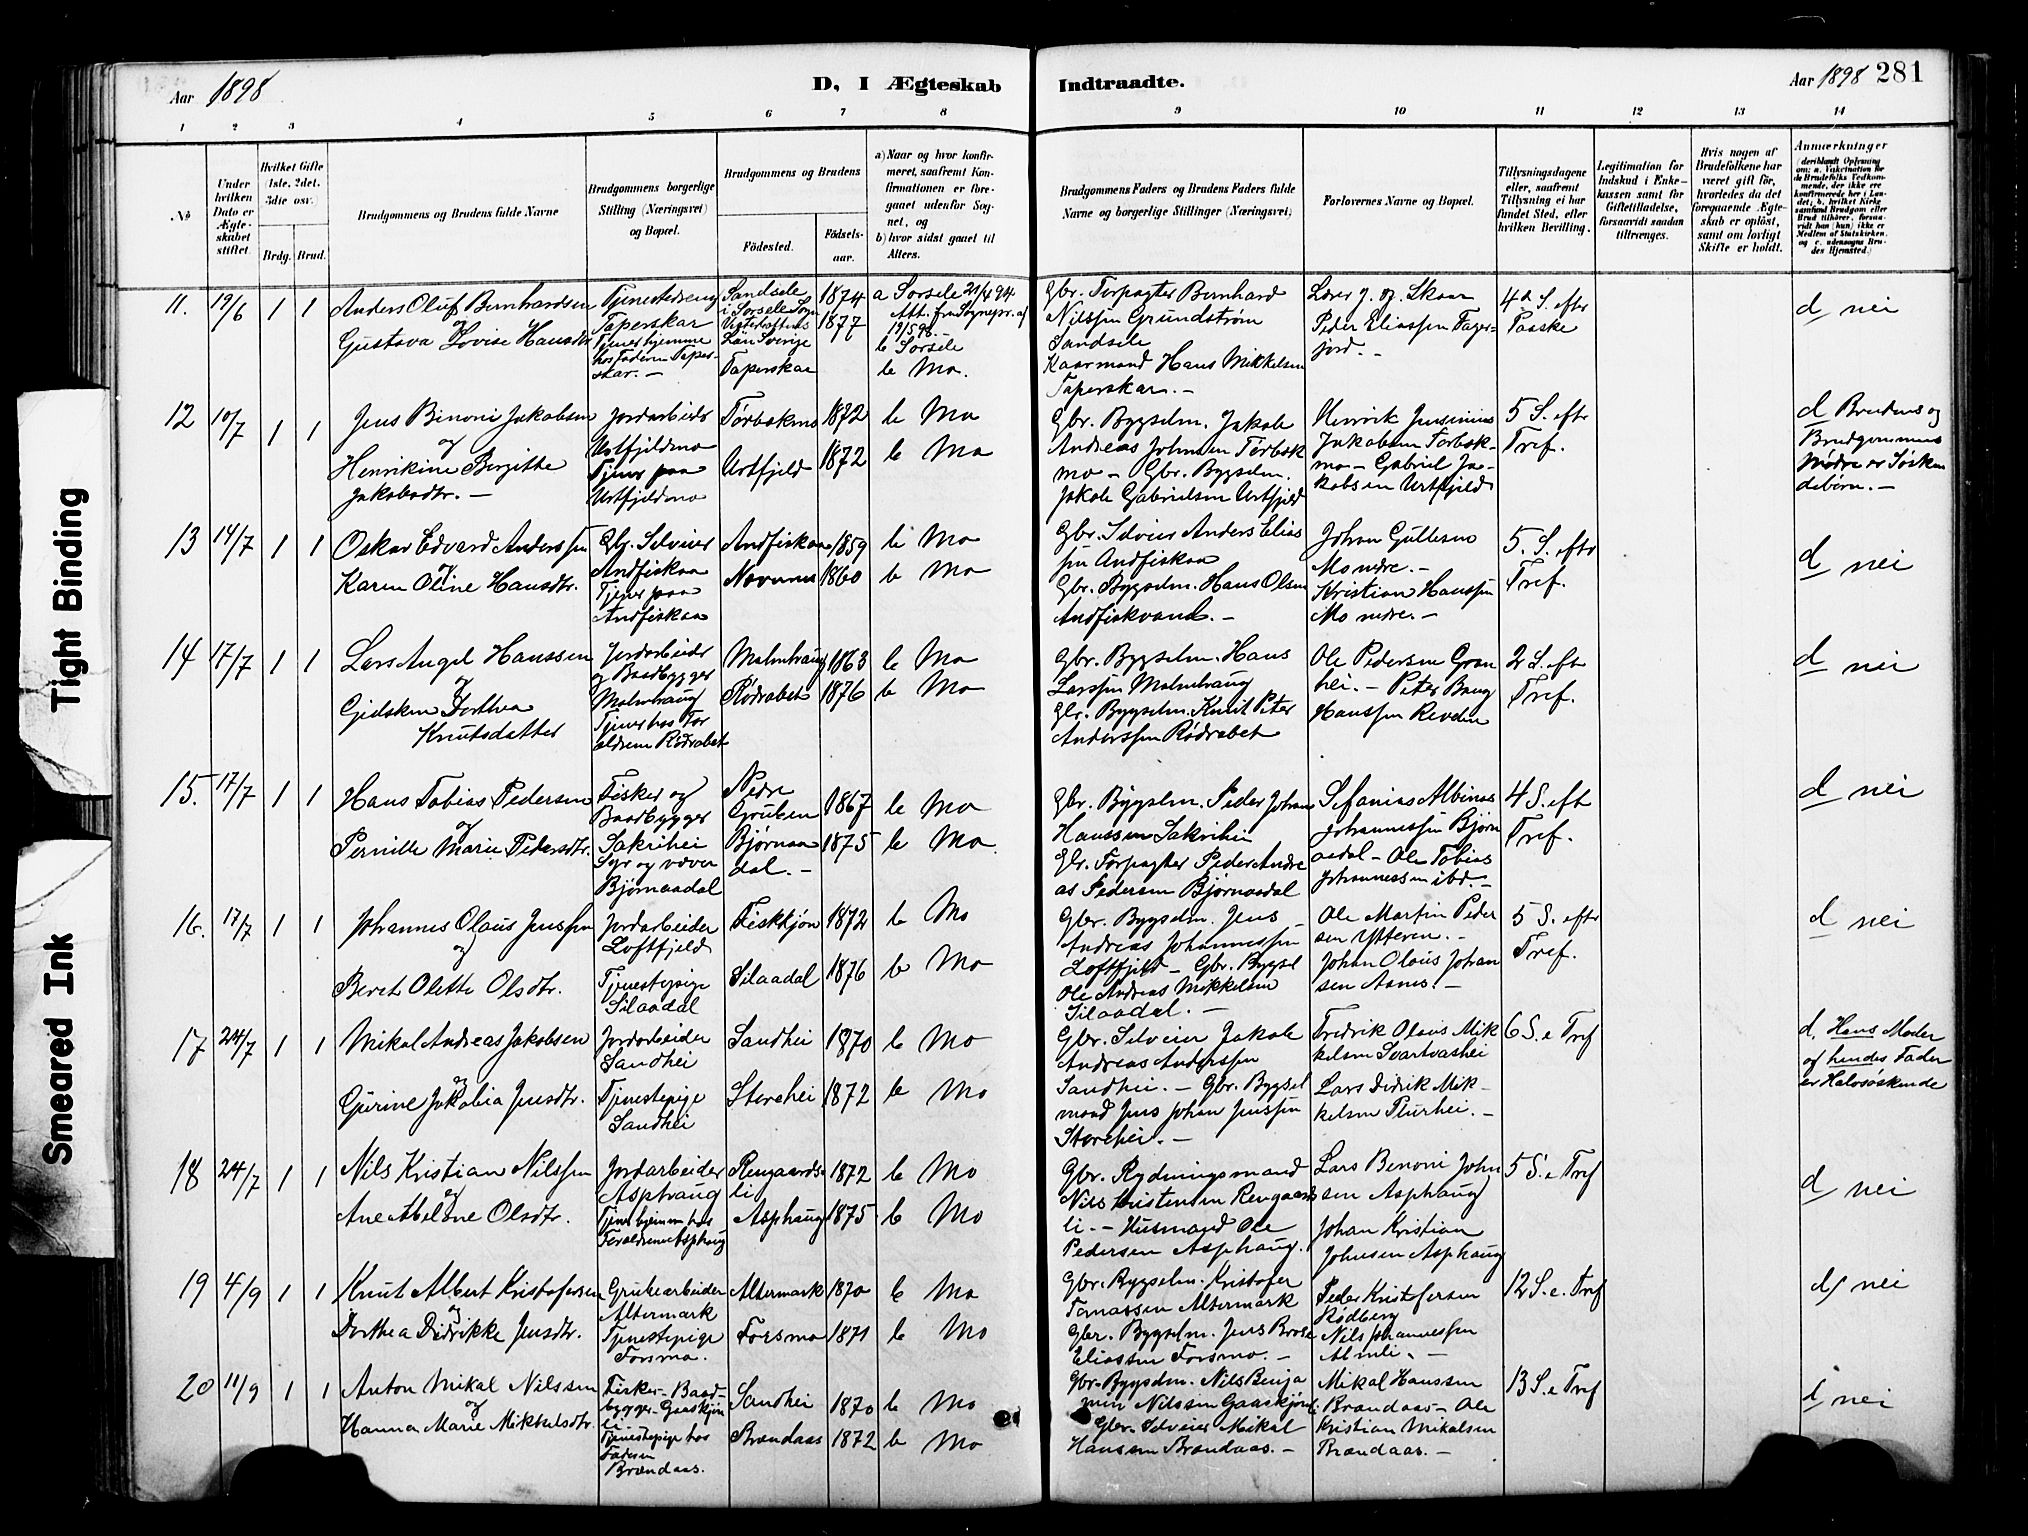 Aar 1898
D, I Ægteskab
Indtraadte.
Aar 1898 281
1 2 3 4 5 6 7 8 9 10 11 12 13 14
No
Under hvilken Dato er Ægteskabet stiftet
Hvilket Gifte (1ste, 2det, 3die osv.)
Brdg. Brud.
Brudgommens og Brudens fulde Navne
Brudgommens borgerlige Stilling (Næringsvei) og Bopæl.
Brudgommens og Brudens
Fødested.
Fødselsaar.
a) Naar og hvor konfirmeret, saafremt Konfirmationen er foregaaet udenfor Sognet, og
b) hvor sidst gaaet til Alters.
Brudgommens Faders og Brudens Faders fulde Navne og borgerlige Stillinger (Næringsvei)
Forlovernes Navne og Bopæl.
Tillysningsdagene eller, saafremt Tillysning ei har fundet Sted, efter hvilken Bevilling.
Legitimation for Indskud i Enkekassen samt for Giftetilladelse, forsaavidt saadan tiltrænges.
Hvis nogen af Brudefolkene har været gift før, hvorledes da det foregaaende Ægteskab er opløst, samt om lovligt Skifte er holdt.
Anmærkninger
11. 19/6 1 1
Anders Oluf Bernhardsen
og
Gustava Lovise Hansdtr
Tjenestedreng
Taperskar
Tjener hjemme
hos Faderen Taperskar. —
Sandsele
i Sorsele Sogn
Vesterbottens
Län Sverige
Taperskar
1874
1877
a Sorsele 21/4 94
Att. fra Sognepr. af
19/5 98.
b Sorsele
b Mo.
Gbr. Forpagter Bernhard
Nilssen Grundström
Sandsele
Kaarmand Hans Mikkelsen
Taperskar. —
Lærer J. Skaar
Peder Eliassen Fagerjord. —
4de S. efter
Paaske
d nei
12 10/7 1 1
Jens Benoni Jakobsen
og
Henrikine Bergitte
Jakobsdtr. —
Jordarbeider
Urtfjeldmo
Tjener paa
Urtfjeldmo
Forbakmo
Urtfjeld
1872
1872
b Mo
b Mo
Gbr. Bygselm. Jakob
Andreas Johnsen Forbakmo — Gbr. Bygselm.
Jakob Gabrielsen Urtfjeld
Henrik Jensenius
Jakobsen Forbakmo — Gabriel Jakobsen Urtfjeld
5 S. efter
Tref.
d Brudens og
Brudgommens
Mødre er Søskendebørn. —
13 14/7 1 1
Oskar Edvard Anderssen
og
Karen Oline Hansdtr.
Gbr. Selveier
Andfiskaa
Tjener paa
Andfiskaa
Andfiskaa
Nævernes
1859
1860
b Mo
b Mo
Gbr. Selveier Anders Eliassen Andfiskaa
Gbr. Bygselm. Hans Olsen
Andfiskvand. —
Johan Gullesen
Mo nedre. —
Kristian Hanssen
Mo nedre. —
5. S. efter
Tref.
d nei
14 17/7 1 1
Lars Angel Hanssen
og
Gidsken Dorthea
Knutsdatter
Jordarbeider
og Baadbygger
Malmhaug
Tjener hos Forældrene Rødsabet
Malmhaug
Rødsabet
1863
1876
b Mo
b Mo
Gbr. Bygselm. Hans
Larssen Malmhaug
Gbr. Bygselm. Knut Peter
Anderssen Rødsabet
Ole Pedersen Granhei. — Peter Bang
Hanssen Revelen
2 S. eft
Tref.
d nei
15. 17/7 1 1
Hans Tobias Pedersen
og
Pernille Marie Pedersdtr.
Fisker og
Baadbygger
Sakrihei
Syr og væver
Bjørnaadal
Nedre
Gruben
Bjørnaadal. —
1867
1875
b Mo
b Mo.
Gbr. Bygselm. Peder Johan
Hanssen Sakrihei
Gbr. Forpagter Peder Andreas Pedersen Bjørnaadal
Sefanias Albinas
Johannessen Bjørnaadal — Ole Tobias
Johannessen ibd. —
4 S. eft
Tref.
d nei
16. 17/7 1 1
Johannes Olaus Jenssen
og
Beret Olette Olsdtr.
Jordarbeider
Loftfjeld
Tjenestepige
Silaadal
Fisktjøn
Silaadal
1872
1876
b Mo
b Mo
Gbr. Bygselm. Jens
Andreas Johannessen
Loftfjeld — Gbr. Bygsel
Ole Andreas Mikkelsen
Silaadal. —
Ole Martin Pedersen Ytteren. —
Johan Olaus Johansen Asnes. —
5 S. efter
Tref.
d nei
17 24/7 1 1
Mikal Andreas Jakobsen
og
Gurine Jakobia Jensdtr.
Jordarbeider
Sandhei
Tjenestepige
Sandhei
Sandhei
Storehei
1870
1872
b Mo
b Mo
Gbr. Selveier Jakob
Andreas Anderssen
Sandhei. — Gbr. Bygselmand Jens Johan Jenssen
Storehei. —
Fredrik Olaus Mikkelsen Svartvashei
Lars Didrik Mikkelsen Plurhei. —
6 S. e Tref
d. Hans Moder
og hendes Fader
er Halvsøskende
18 24/7 1 1
Nils Kristian Nilssen
og
Ane Abelone Olsdtr.
Jordarbeider
Asphaug
Tjener hjemme hos
Forældrene Asphaug
Rengaardsli
Asphaug
1872
1875
b Mo
b Mo
Gbr. Rydningsmand
Nils Kristensen Rengaardsli. — Husmand Ole
Pedersen Asphaug.
Lars Benoni Johnsen Asphaug
Johan Kristian
Johnsen Asphaug
5 S. e Tref
d nei
19 4/9 1 1
Knut Albert Kristofersen
og
Dorthea Didrikke Jensdtr.
Grubearbeider
Altermark
Tjenestepige
Forsmo.
Altermark
Forsmo
1870
1871
b Mo
b Mo
Gbr. Bygselm. Kristofer
Tomassen Altermark
Gbr. Bygselm. Jens Brose
Eliassen Forsmo. —
Peder Kristofersen
Rødberg
Nils Johannessen
Almli. —
12 S. e. Tref
d nei
20 11/9 1 1
Anton Mikal Nilssen
og
Hanna Marie Mikkelsdtr.
Fisker – Baadbygger – Gaaskjønli –
Tjenestepige hos
Faderen
Brændaas.
Sandhei
Brændaas
1870
1872
b Mo
b Mo
Gbr. Bygselm. Nils Benjamin Nilssen Gaaskjønli
Gbr. Selveier Mikal
Hanssen Brændaas. —
Mikal Hanssen
Brændaas – Ole
Kristian Mikalsen
Brændaas. —
13 S. e Tref
d nei
Tight Binding
Smeared Ink